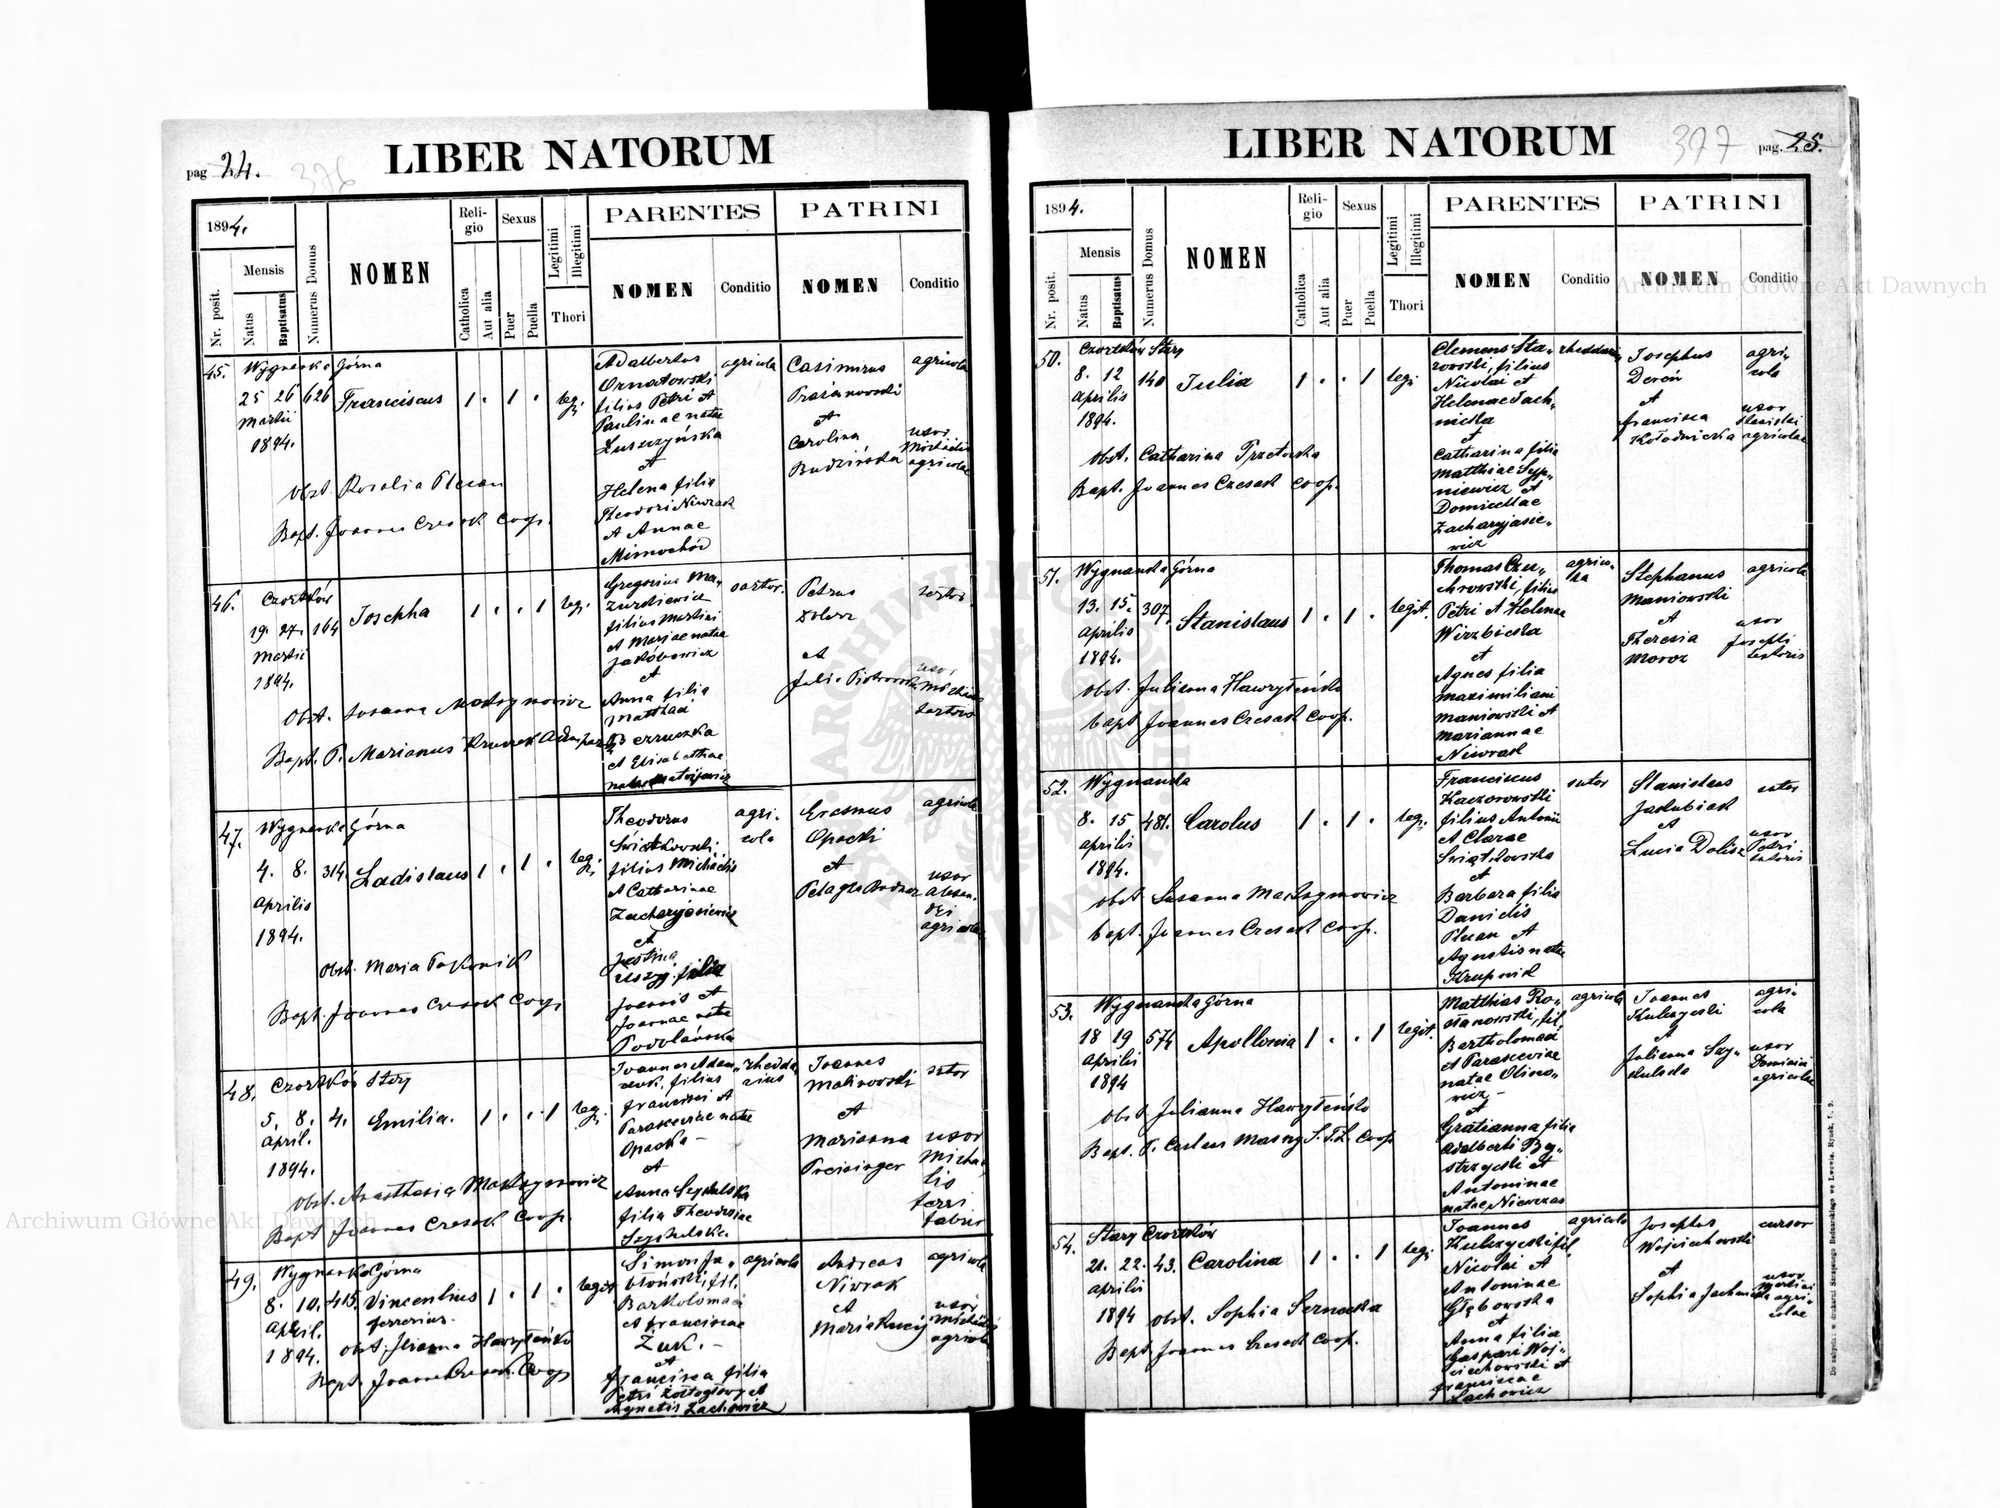 pag 24. 376 LIBER NATORUM
1894.
Nr. posit.
Mensis
Natus
Baptisatus
Numerus Domus
NOMEN
Religio
Catholica
Aut alia
Sexus
Puer
Puella
Legitimi
Illegitimi
Thori
PARENTES
NOMEN
Conditio
PATRINI
NOMEN
Conditio
45. Wygnanka Górna
25 26 626 Franciscus 1 . 1 . leg.
Martii
1894.
Obst. Rosalia Plucan
Bapt. Joannes Czesak Coop.
Adalbertus
Ornatowski
filius Petri et
Paulinae natae
Łuszczyńska
et
Helena filia
Theodori Niwrak
et Annae
agricola
Casimirus
et
Carolina
Budzińska
agricola
uxor
Michaelis
agricolae
46. Czortków
19. 27. 164 Josepha 1 . . 1 leg.
Martii
1894.
Obst. Susanna Maksymowicz
Bapt. P. Marianus
Gregorius Ma-
zurkiewicz
filius Martini
et Mariae natae
Jakóbowicz
et
Anna filia
Matthaei
et Elisabethae
natae Matwijowicz
sartor.
Petrus
et
Julia Piotrowska
sartor
uxor
sartoris
47. Wygnanka Górna
4. 8. 314. Ladislaus 1 . 1 . leg.
Aprilis
1894.
Obst. Maria
Bapt. Joannes Czesak Coop
Theodorus
Świątkowski,
filius Michaelis
et Catharinae
Zacharyasiewicz
et
Justina
filia
Joannis et
Joannae natae
Podolańska
agri-
cola
Erasmus
Opacki
et
agricola
uxor
agricolae
48. Czortków Stary
5. 8. 4. Emilia. 1 . . 1 leg.
April.
1894.
Obst. Anasthasia Maksymowicz
Bapt Joannes Czesak Coop.
Joannes Adam-
czuk, filius
Francisci et
Parasceviae natae
Opacka –
et
Anna Szydelska
filia Theodosiae
Szydelska.
rhedda-
rius
Joannes
Malinowski
et
Marianna
Preisinger
sutor
uxor
Michae-
lis
ferri
fabri
49. Wygnanka Górna
8. 10. 415. Vincentius 1 . 1 . legit
Ferrerius.
April.
1894. obst. Juliana Hawryłeńko
Bapt. Joannes Czesak Coop
Simon Ja-
błoński, fil.
Bartholomaei
et Franciscae
Żuk. –
et
Francisca filia
Petri Żółtogłowy et
Agnetis Zachowicz
agricola
Andreas
Niwrak
et
Maria Kucij
agricola
uxor
Michaelis
agricolae
LIBER NATORUM 377 pag. 25.
1894.
Nr. posit.
Mensis
Natus
Baptisatus
Numerus Domus
NOMEN
Religio
Catholica
Aut alia
Sexus
Puer
Puella
Legitimi
Illegitimi
Thori
PARENTES
NOMEN
Conditio
PATRINI
NOMEN
Conditio
50. Czortków Stary
8. 12 140 Julia 1 . . 1 leg.
Aprilis
1894.
Obst. Catharina Przetocka
Bapt. Joannes Czesak Coop.
Clemens Sta-
rowski, filius
Nicolai et
Helenae Jach-
nicka
et
Catharina filia
Matthiae Syp-
niewicz et
Domicellae
Zacharyjasie-
wicz
rheddarius
Josephus
Dereń
et
Francisca
Kołodnicka
agri-
cola
uxor
Stanislai
agricolae
51. Wygnanka Górna
13. 15. 307. Stanislaus 1 . 1 . legit.
Aprilis
1894.
Obst. Julianna Hawryłeńko
bapt Joannes Czesak Coop.
Thomas Czu-
chrowski, filius
Petri et Helenae
Wirzbicka
et
Agnes filia
Maximiliani
Maniowski et
Mariannae
Niwrak
agrico-
la
Stephanus
Maniowski
et
Theresia
Moroz
agricola
uxor
Josephi
textoris
52. Wygnanka
8. 15 481. Carolus 1 . 1 . leg.
Aprilis
1894.
obst Susanna Maksymowicz
bapt. Joannes Czesak Coop.
Franciscus
Kaczorowski
filius Antonii
et Clarae
Świątkowska
et
Barbara filia
Danielis
Plucan et
Agnetis natae
Krupnik
sutor
Stanislaus
Jakubiak
et
Lucia Dolisz
sutor
uxor
Petri
sutoris
53. Wygnanka Górna
18 19 574 Apollonia 1 . . 1 legit.
Aprilis
1894
Obst. Julianna Hawryłeńko
Bapt. P. Ceslaus Masny S.T.L. Coop
Matthias Ro-
manowski, fil.
Bartholomaei
et Parasceviae
natae Olino-
wicz –
et
Gratianna filia
Adalberti By-
strzycki et
Antoninae
natae Niewczas
agricola
Joannes
Kulczycki
et
Julianna Szy-
dulska
agri-
cola
uxor
Dominici
agricolae
54. Stary Czortków
21. 22. 43. Carolina 1 . . 1 leg.
Aprilis
1894 obst. Sophia Sernecka
Bapt. Joannes Czesak Coop.
Joannes
Kulczycki fil.
Nicolai et
Antoninae
Głębowska
et
Anna filia
Gaspari Woj-
ciechowski et
Franciscae
Zachowicz
agricola
Josephus
Wojciechowski
et
Sophia Jachnicka
cursor
uxor
agri-
colae
Archiwum Główne Akt Dawnych
Archiwum Główne Akt Dawnych